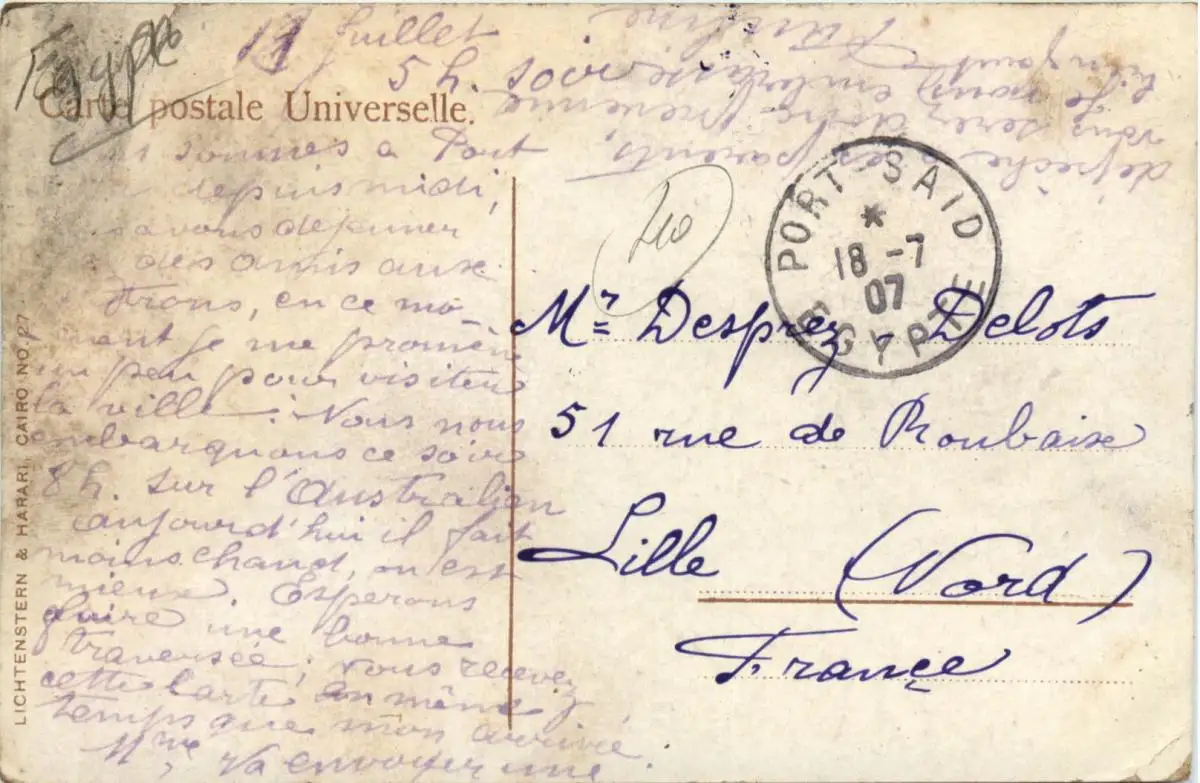 Egypte
17 Juillet
5 h. soir
Carte postale Universelle.
sommes a Port
depuis midi,
avons dejeuner
des amis aux
, en ce mo-
ment je me promène
un peu pour visiter
la ville. Nous nous
embarquons ce soir
8h. sur l'Australien
aujourd'hui il fait
moins chaud, on est
mieux. Esperons
faire une bonne
traversée; vous recevez
cette carte en même
temps que mon arrivée.
Mme Va envoyer une
dépêche à ses parents
vous serez donc prévenue
Je vous embrasse
bien
PORT SAID
18 -7
07
EGYPTE
Mr Desprez - Delots
51 rue de Roubaix
Lille (Nord)
France
LICHTENSTERN & HARARI, CAIRO NO. 27